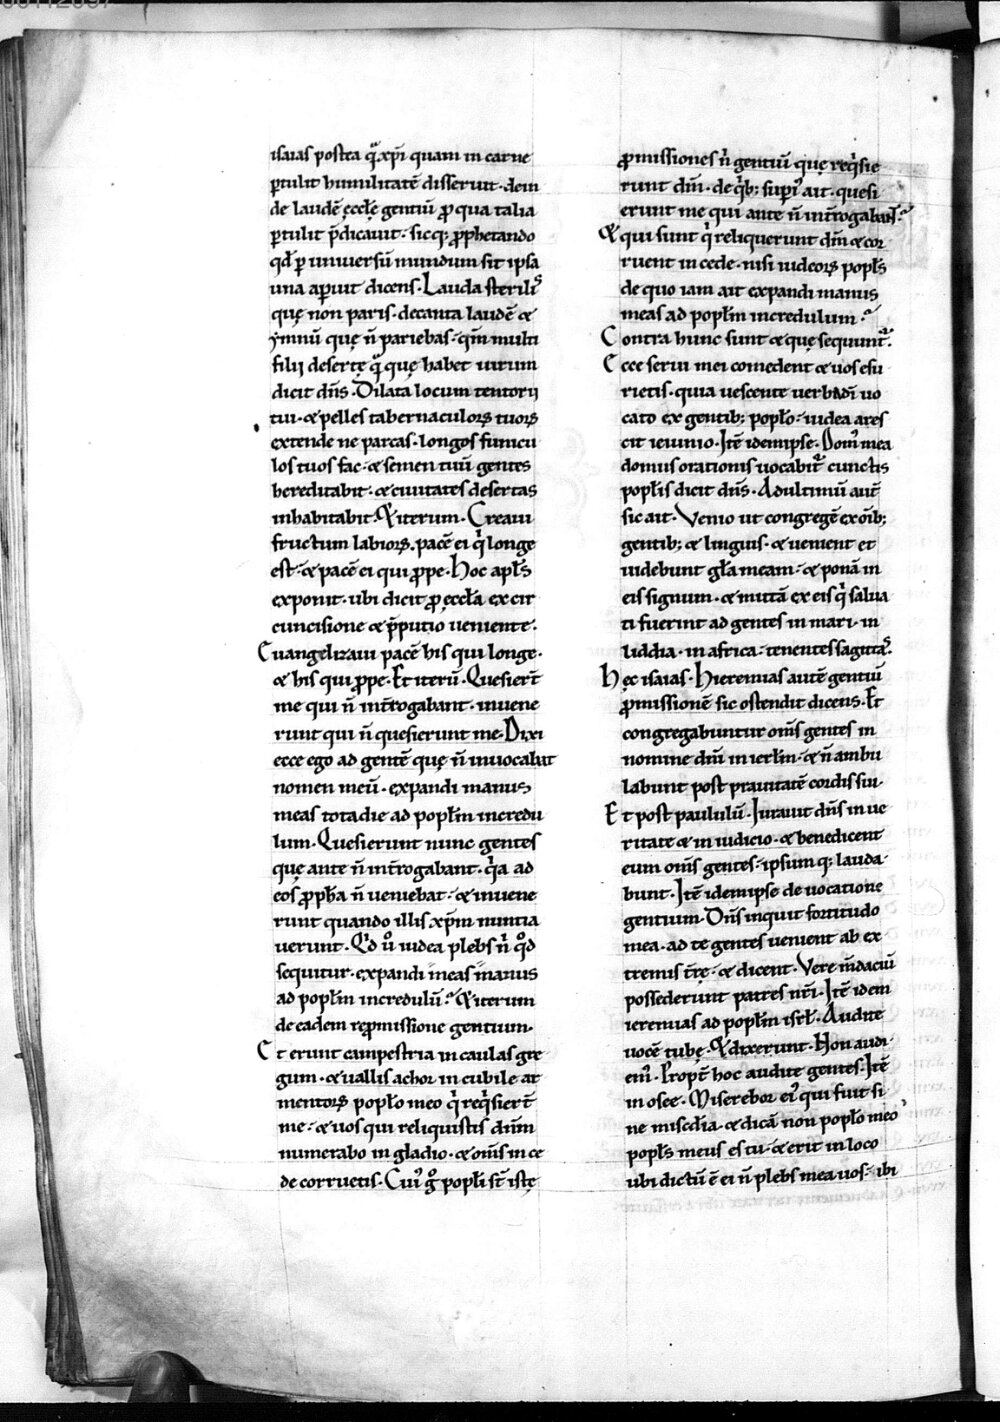 isaias postea q̄ xp̄i quam in carne
ꝑtulit humilitatē disseruit · dein
de laudē ęccłę gentiū ꝓ qua talia
ꝑtulit p̄dicauit · sicq; ꝓphetando
qđ ꝑ uniuersū mundum sit ipsa
una aꝑuit dicens · Lauda steriłis
quę non paris · decanta laudē &
ymnū quę n̄ pariebas · qm̄ multi
filii desertę q̄ quę habet uirum
dicit dn̄s · Dilata locum tentorii
tui · & pelles tabernaculoꝝ tuoꝝ
extende ne parcas · longos funicu
los tuos fac · & semen tuū gentes
hereditabit · & ciuitates desertas
inhabitabit · & iterum · Creaui
fructum labioꝝ, pacē ei q̄ longe
est · & pacē ei qui ꝓpe · Hoc apłs
exponit · ubi dicit ꝓ ęccła ex cir
cuncisione & p̄putio ueniente ·
Euangelizaui pacē his qui longe ·
& his qui ꝓpe · Et iterū · Quesier̄t
me qui n̄ int̄rogabant · inuene
runt qui n̄ quesierunt me · Dixi
ecce ego ad gentē quę n̄ inuocabat
nomen meū · expandi manus
meas tota die ad popłm incredu
lum · Quesierunt nunc gentes
quę ante n̄ int̄rogabant · q̄a ad
eos ꝓpħa n̄ ueniebat · & inuene
runt quando illis xp̄m nuntia
uerunt · Qd̄ ů iudea plebs n̄ qd̊
sequitur · expandi meas manus
ad popłm incredulū · & iterum
de eadem repromissione gentium ·
Et erunt campestria in caulas gre
gum · & uallis achor in cubile ar
mentoꝝ popło meo q̄ reqsier̄t
me · & uos qui reliquistis dn̄m
numerabo in gladio · & om̄s in ce
de corruetis · Cui' g̊ popłi s̄t istę
ꝓmissiones n̄ gentiū quę req̄sie
runt dm̄ · de q̄b; supi' ait · quesi
erunt me qui ante n̄ int̄rogaban̄t
& qui sunt q̄ reliquerunt dm̄ & cor
ruent in cede · nisi iudeoꝝ popłs
de quo iam ait expandi manus
meas ad popłm incredulum ·
Contra hunc sunt & quę sequunt̄ ·
Ecce serui mei comedent & uos esu
rietis · quia uescente uerbū dī uo
cato ex gentib; popło · iudea ares
cit ieiunio · Itē idem ipse · Dom' mea
domus orationis uocabit̄ cunctis
popłis dicit dn̄s · Ad ultimū aut̄
sic ait · Venio ut congregē ex om̄ib;
gentib; & linguis · & uenient et
uidebunt głam meam · & ponā in
eis signum · & mittā ex eis q̄ salua
ti fuerint ad gentes in mari · in
liddia · in africa · tenentes sagitta͛ ·
Hęc isaias · Hieremias autē gentiū
ꝓmissionē sic ostendit dicens · Et
congregabuntur om̄s gentes in
nomine dn̄i in ierłm · & n̄ ambu
labunt post prauitatē cordis sui ·
Et post paululū · Iurauit dn̄s in ue
ritate & in iudicio · & benedicent
eum om̄s gentes · ipsum q; lauda·
bunt · Itē idem ipse de uocatione
gentium · Dn̄s inquit fortitudo
mea · ad te gentes uenient ab ex
tremis t̄rę · & dicent · Vere m̄daciū
possederunt patres nr̄i · Itē idem
ieremias ad popłm isrł · Audite
uocē tubę · & dixerunt · Non audi·
em' · Propt̄ hoc audite gentes · Itē
in osee · Miserebor ei' qui fuit si
ne miscđia · & dicā non popło meo
popłs meus es tu · & erit in loco
ubi dictū ē ei n̄ plebs mea uos · ibi